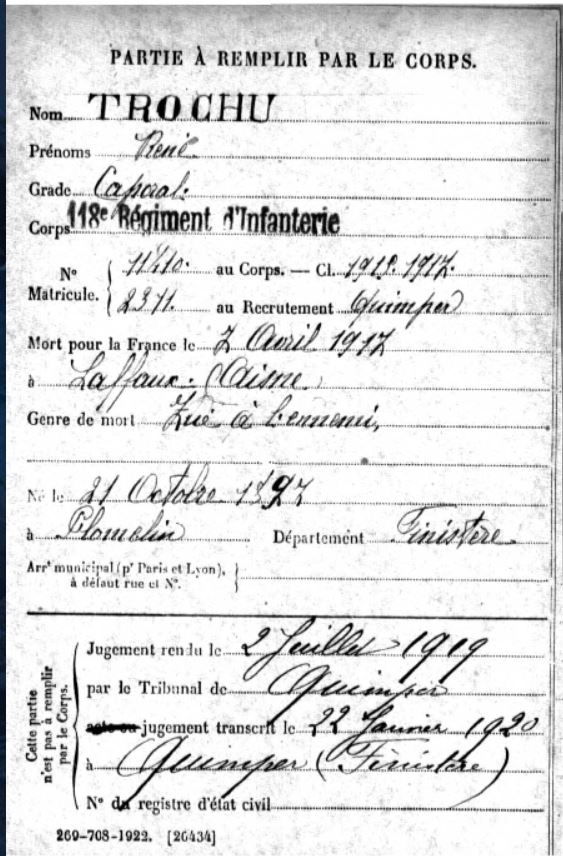 PARTIE À REMPLIR PAR LE CORPS.
Nom TROCHU
Prénoms René
Grade Caporal.
Corps 118e Régiment d'Infanterie
N° Matricule. { 11410. au Corps. — Cl. 1918. 1917.
2371. au Recrutement Quimper
Mort pour la France le 7 Avril 1917
à Laffaux. (Aisne)
Genre de mort Tué à l'ennemi,
Né le 21 Octobre 1897
à Plomelin Département Finistère
Arrt municipal (pr Paris et Lyon), à défaut rue et N°. }
Cette partie n'est pas à remplir par le Corps.
Jugement rendu le 2 Juillet 1919
par le Tribunal de Quimper
acte ou jugement transcrit le 22 Janvier 1920
à Quimper (Finistère)
N° du registre d'état civil
269-708-1922. [26434]